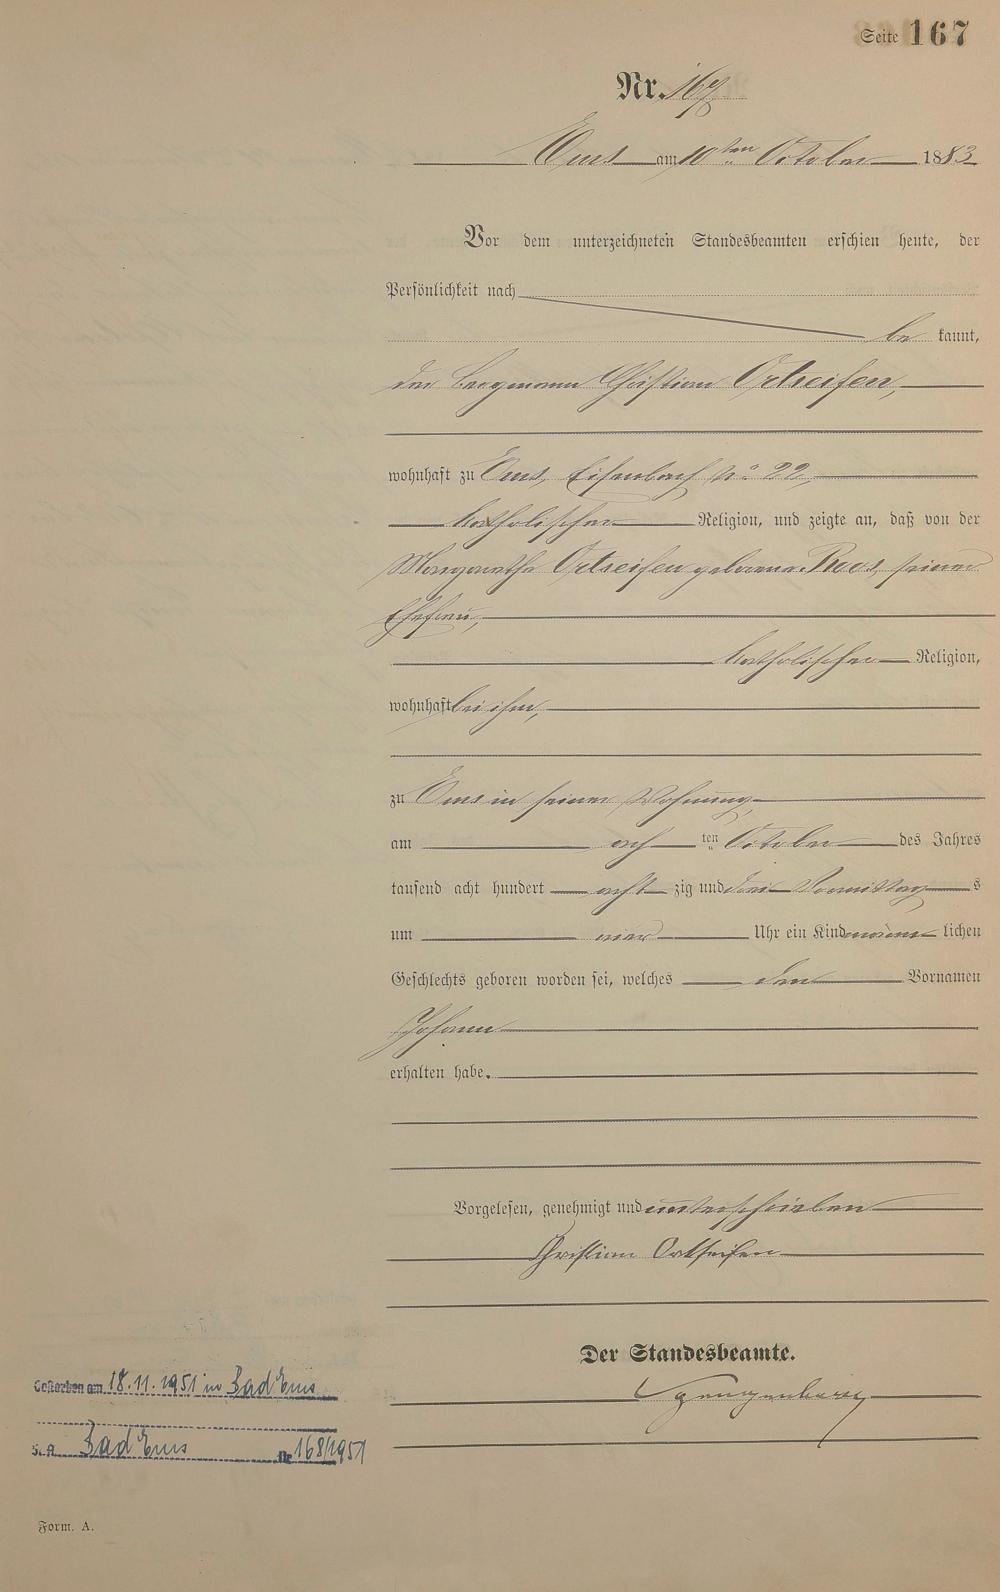 Seite 167
Nr. 167
Ems am 10ten October 1883
Vor dem unterzeichneten Standesbeamten erschien heute, der
Persönlichkeit nach
be kannt,
der Bergmann Christian Ortseifen,
wohnhaft zu Ems, Eisenbach No 22,
katholischer Religion, und zeigte an, daß von der
Margarethe Ortseifen geborene Roos, seiner
Ehefrau,
katholischer Religion,
wohnhaft bei ihm,
zu Ems in seiner Wohnung,
am ach ten October des Jahres
tausend acht hundert acht zig und drei Vormittag s
um vier Uhr ein Kind männ lichen
Geschlechts geboren worden sei, welches den Vornamen
Johann
erhalten habe.
Vorgelesen, genehmigt und unterschrieben
Christian Ortseifen
Der Standesbeamte.
Gestorben am 18.11.1951 in Bad Ems
S. A. Bad Ems Nr 168/1951
Form. A.